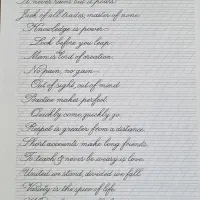 It never rains but it pours.
Jack of all trades, master of none.
Knowledge is power.
Look before you leap.
Man is lord of creation.
No pain, no gain.
Out of sight, out of mind.
Practice makes perfect.
Quickly come, quickly go.
Respect is greater from a distance.
Short accounts make long friends.
To teach & never be weary is love.
United we stand, divided we fall.
Variety is the spice of life.